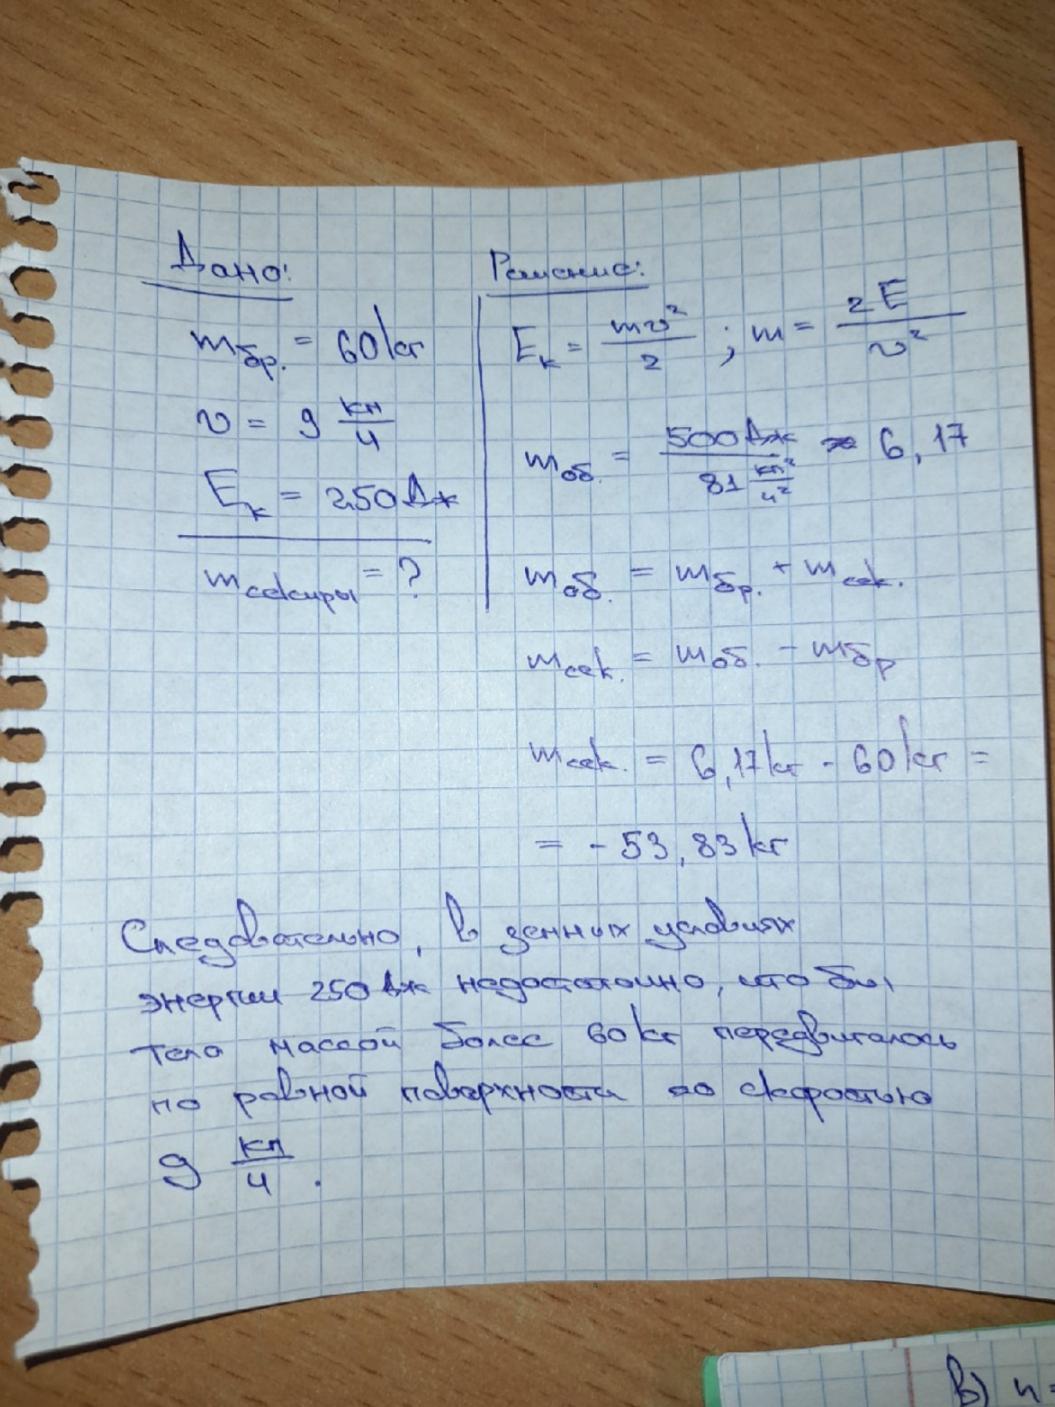 Дано:
m бр. = 60 кг
v = 9 км/ч
Eк = 250 Дж
m секиры = ?
Решение:
Eк = mv²/2 ; m = 2E/v²
m об. = 500 Дж / 81 км²/ч² ≈ 6,17
m об. = m бр. + m сек.
m сек. = m об. - m бр
m сек. = 6,17 кг - 60 кг =
= - 53,83 кг
Следовательно, в данных условиях
энергии 250 Дж недостаточно, что бы
тело массой более 60 кг передвигалось
по ровной поверхности со скоростью
9 км/ч .
в) 4 =